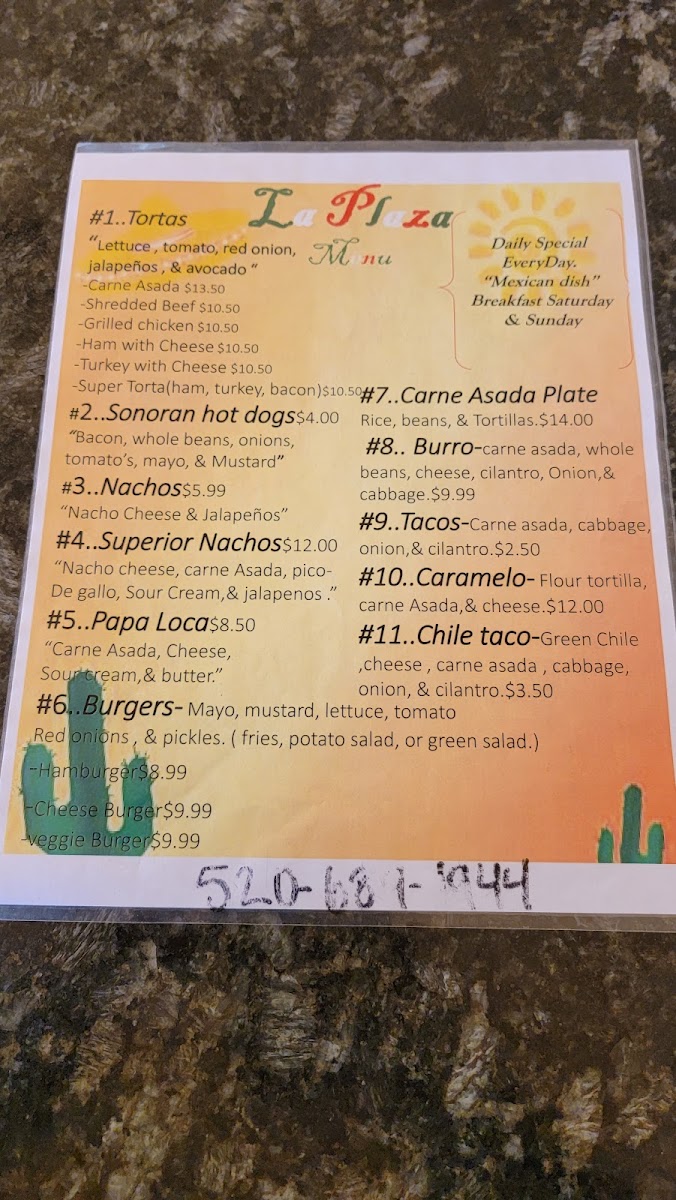 La Plaza
Menu
#1..Tortas
“Lettuce , tomato, red onion,
jalapeños , & avocado “
-Carne Asada $13.50
-Shredded Beef $10.50
-Grilled chicken $10.50
-Ham with Cheese $10.50
-Turkey with Cheese $10.50
-Super Torta(ham, turkey, bacon)$10.50
#2..Sonoran hot dogs$4.00
“Bacon, whole beans, onions,
tomato’s, mayo, & Mustard”
#3..Nachos$5.99
“Nacho Cheese & Jalapeños”
#4..Superior Nachos$12.00
“Nacho cheese, carne Asada, pico-
De gallo, Sour Cream,& jalapenos .”
#5..Papa Loca$8.50
“Carne Asada, Cheese,
Sour cream,& butter.”
#6..Burgers- Mayo, mustard, lettuce, tomato
Red onions , & pickles. ( fries, potato salad, or green salad.)
-Hamburger$8.99
-Cheese Burger$9.99
-veggie Burger$9.99
Daily Special
EveryDay.
“Mexican dish”
Breakfast Saturday
& Sunday
#7..Carne Asada Plate
Rice, beans, & Tortillas.$14.00
#8.. Burro-carne asada, whole
beans, cheese, cilantro, Onion,&
cabbage.$9.99
#9..Tacos-Carne asada, cabbage,
onion,& cilantro.$2.50
#10..Caramelo- Flour tortilla,
carne Asada,& cheese.$12.00
#11..Chile taco-Green Chile
,cheese , carne asada , cabbage,
onion, & cilantro.$3.50